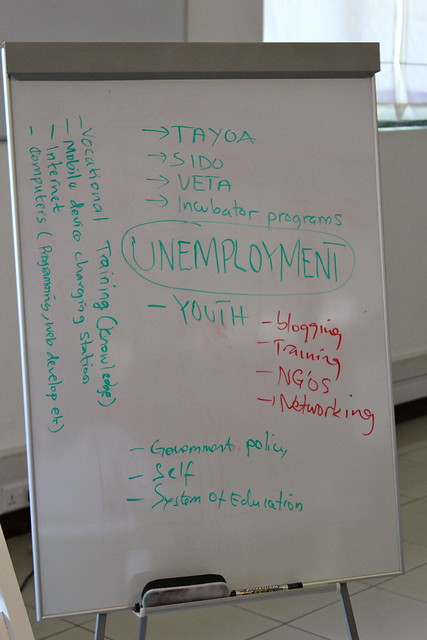 → TAYOA
→ SIDO
→ VETA
→ Incubator programs
UNEMPLOYMENT
– YOUTH
– blogging
– Training
– NG'OS
→ Networking
– Government policy
– Self
– System of Education
– Vocational Training (Knowledge)
– Mobile device charging station
– Internet
– Computers ( Programming, web develop etc)